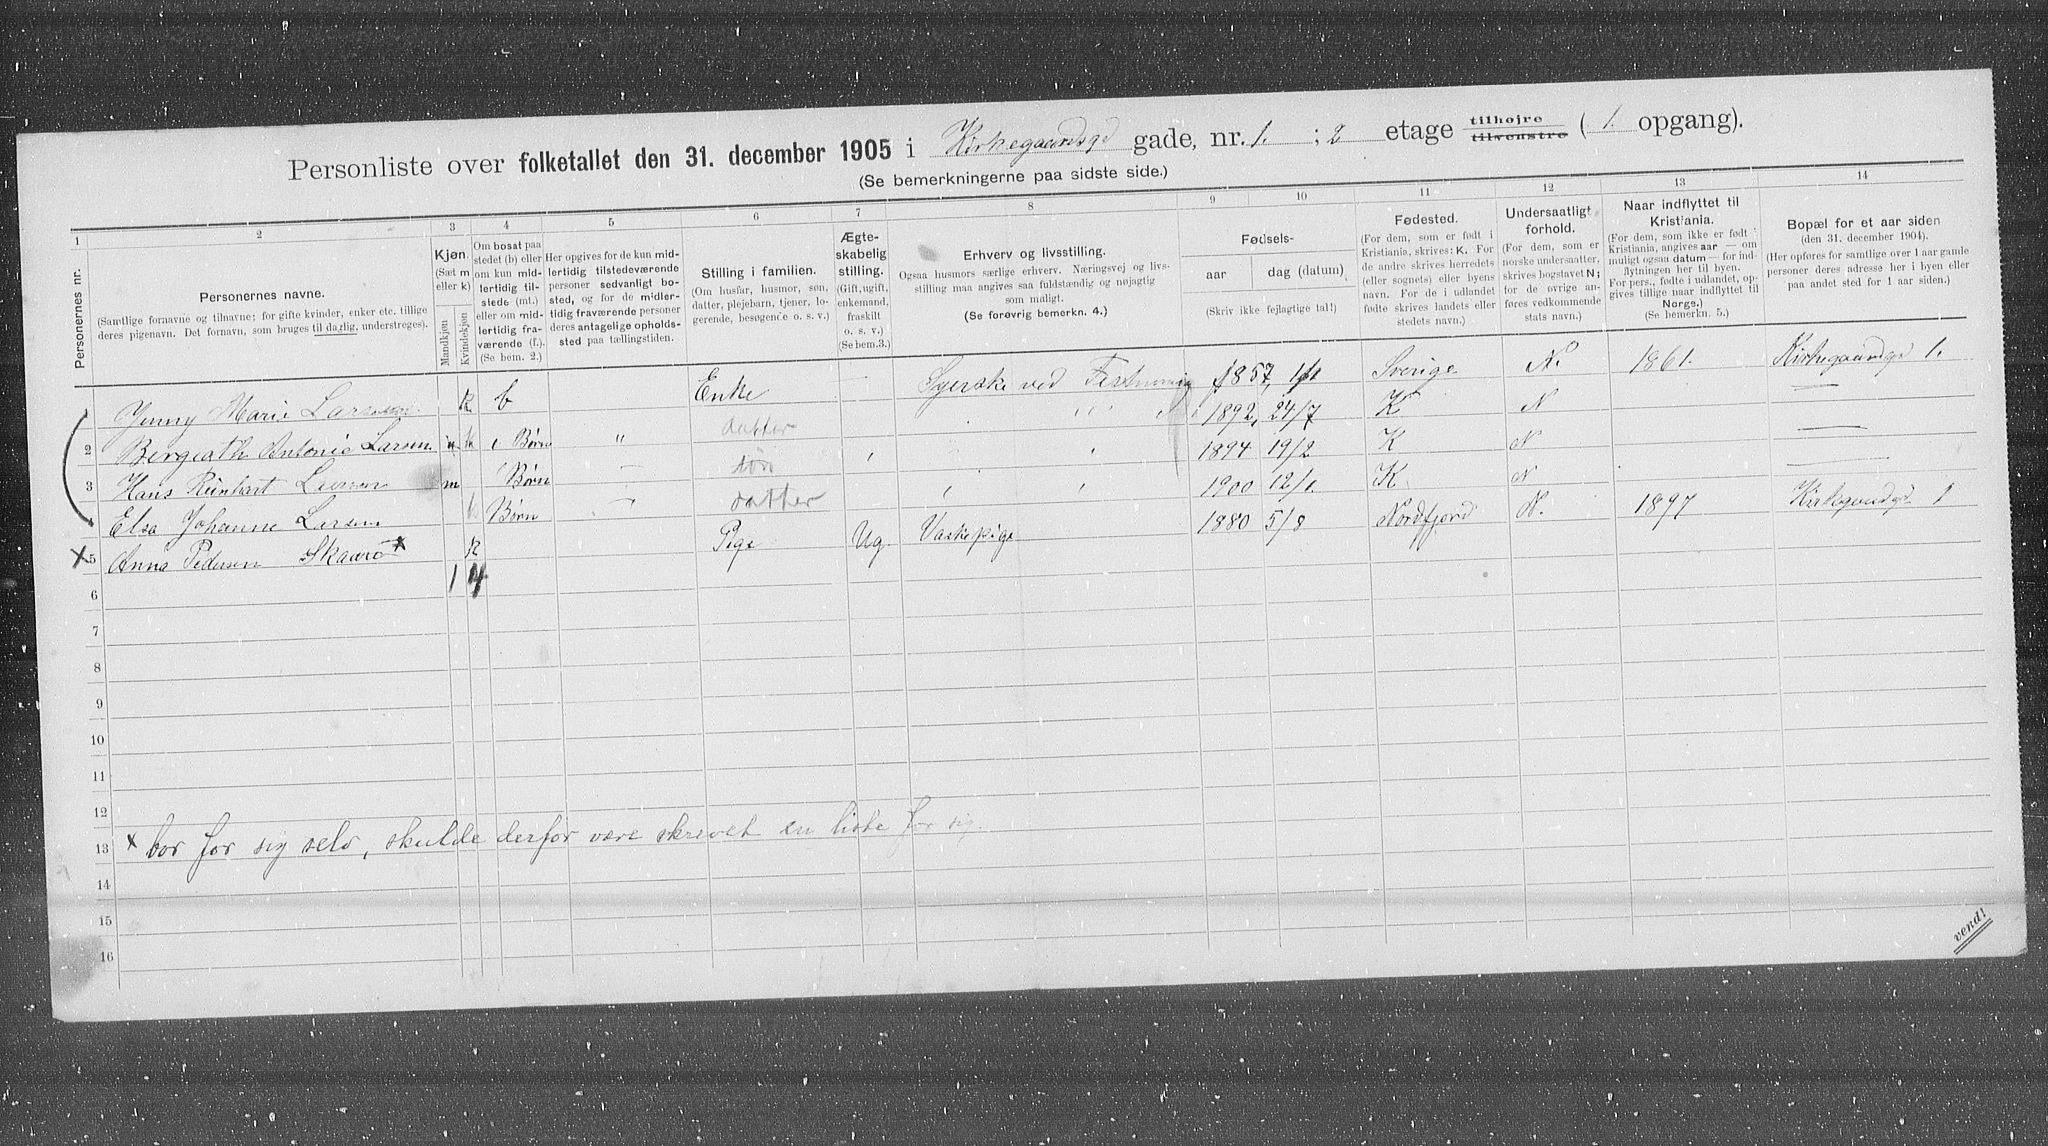 Personliste over folketallet den 31. december 1905 i Kirkegaardsgd gade, nr. 1. ; 2 etage tilhøjre tilvenstre ( 1. opgang).
(Se bemerkningerne paa sidste side.)
1 2 3 4 5 6 7 8 9 10 11 12 13 14
Personernes nr.
Personernes navne.
(Samtlige fornavne og tilnavne; for gifte kvinder, enker etc. tillige
deres pigenavn. Det fornavn, som bruges til daglig, understreges).
Kjøn.
(Sæt m
eller k)
Mandkjøn
Kvindekjøn
Om bosat paa
stedet (b) eller
om kun mid-
lertidig til-
stede (mt.)
eller om mid-
lertidig fra-
værende (f.).
(Se bem. 2.)
Her opgives for de kun mid-
lertidig tilstedeværende
personer sedvanligt bo-
sted, og for de midler-
tidig fraværende personer
deres antagelige opholds-
sted paa tællingstiden.
Stilling i familien.
(Om husfar, husmor, søn,
datter, plejebarn, tjener, lo-
gerende, besøgende o. s. v.)
Ægte-
skabelig
stilling.
(Gift, ugift,
enkemand,
fraskilt
o. s. v.)
(Se bem.3.)
Erhverv og livsstilling.
Ogsaa husmors særlige erhverv. Næringsvej og livs-
stilling maa angives saa fuldstændig og nøjagtig
som muligt.
(Se forøvrig bemerkn. 4.)
Fødsels-
aar dag (datum)
(Skriv ikke fejlagtige tal!)
Fødested.
(For dem, som er født i
Kristiania, skrives: K. For
de andre skrives herredets
(eller sognets) eller byens
navn. For de i udlandet
fødte skrives landets eller
stedets navn.)
Undersaatligt
forhold.
(For dem, som er
norske undersaatter,
skrives bogstavet N;
for de øvrige an-
føres vedkommende
stats navn.)
Naar indflyttet til
Kristiania.
(For dem, som ikke er født i
Kristiania, angives aar — om
muligt ogsaa datum — for ind-
flytningen her til byen.
For pers., fødte i udlandet, op-
gives tillige naar indflyttet til
Norge.)
(Se bemerkn. 5.)
Bopæl for et aar siden
(den 31. december 1904).
(Her opføres for samtlige over 1 aar gamle
personer deres adresse her i byen eller
paa andet sted for 1 aar siden.)
1 Jenny Marie Larsen k b Enke Syerske ved 1857, 1/1 Sverige N. 1861. Kirkegaardsgd 1.
2 Antonie Larsen k Børn " datter " " 1892, 24/7 K N —
3 Hans Reinhart Larsen m Børn søn 1894 19/2 K N —
4 Elsa Johanne Larsen k Børn datter 1900 12/1. K. N —
x 5 Anna Pedersen Skaarø x k Pige Ug Vaskepige 1880 5/8 Nordfjord N. 1897 Kirkegaardsgd 1
6 1 4
7
8
9
10
11
12
13 x bor for sig selv, skulde derfor være skrevet en liste for sig.
14
15
16
vend!